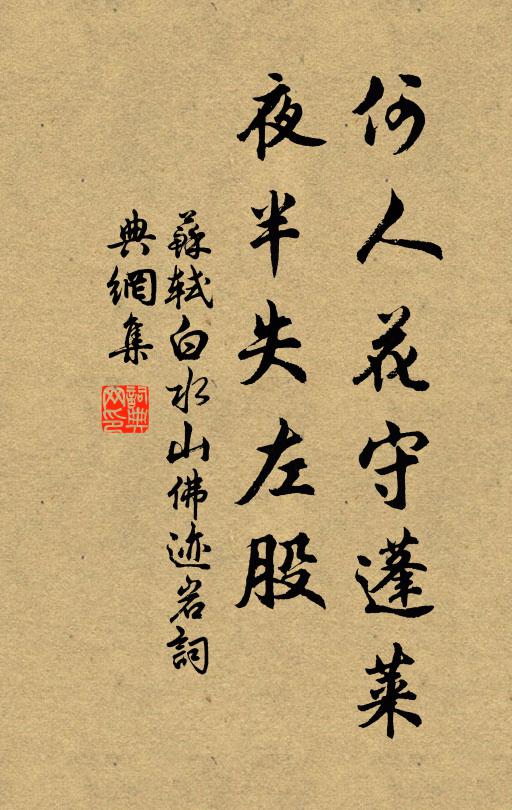 何人花守蓬莱
夜半失左股
蘇軾白水山佛迹岩詞
典網集
詞典網印